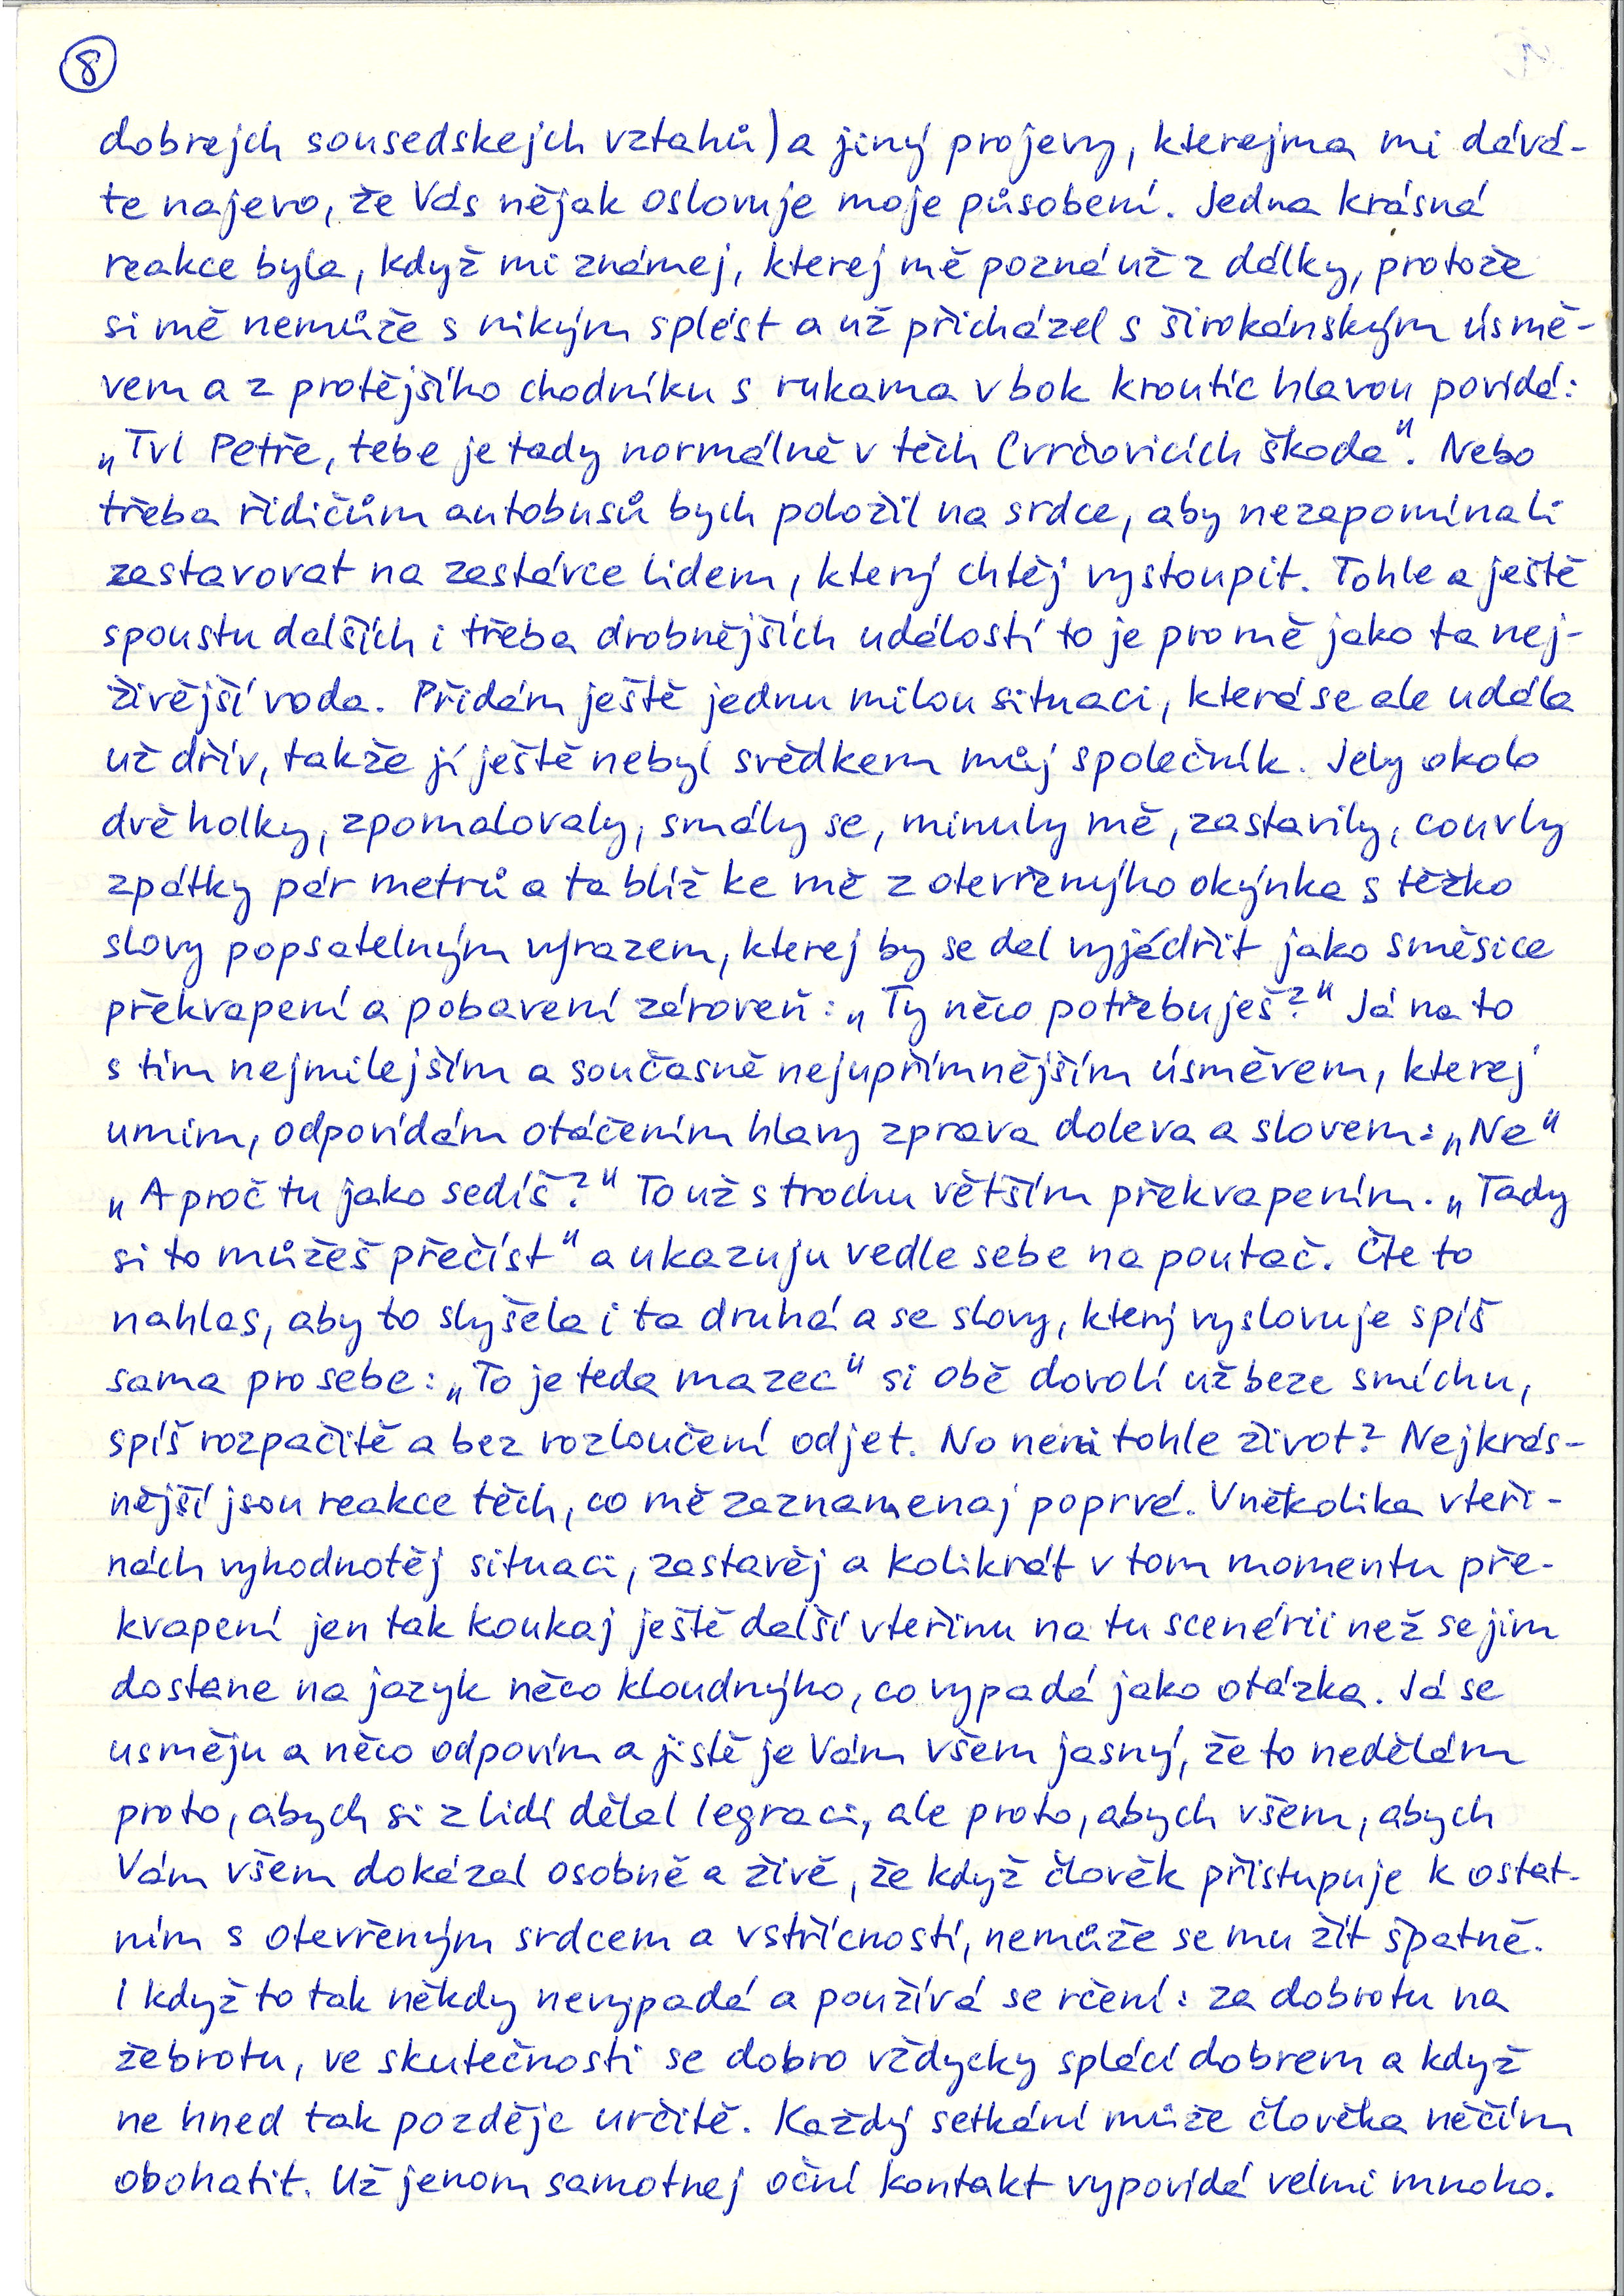 8
dobrejch sousedskejch vztahů) a jiný projevy, kterejma mi dává-
te najevo, že Vás nějak oslovuje moje působení. Jedna krásná
reakce byla, když mi známej, kterej mě pozná už z dálky, protože
si mě nemůže s nikým splést a už přicházel s širokánským úsmě-
vem a z protějšího chodníku s rukama v bok kroutíc hlavou povídá:
„Tvl Petře, tebe je tady normálně v těch Cvrčovicích škoda". Nebo
třeba řidičům autobusů bych položil na srdce, aby nezapomínali
zastavovat na zastávce lidem, který chtěj vystoupit. Tohle a ještě
spoustu dalších i třeba drobnějších událostí to je pro mě jako ta nej-
živější voda. Přidám ještě jednu milou situaci, která se ale udála
už dřív, takže jí ještě nebyl svědkem můj společník. Jely okolo
dvě holky, zpomalovaly, smály se, minuly mě, zastavily, couvly
zpátky pár metrů a ta blíž ke mě z otevřenýho okýnka s těžko
slovy popsatelným výrazem, kterej by se dal vyjádřit jako směsice
překvapení a pobavení zároveň: „Ty něco potřebuješ?" Já na to
s tím nejmilejším a současně nejupřímnějším úsměvem, kterej
umím, odpovídám otáčením hlavy zprava doleva a slovem: „Ne"
„A proč tu jako sedíš?" To už s trochu větším překvapením. „Tady
si to můžeš přečíst" a ukazuju vedle sebe na poutač. Čte to
nahlas, aby to slyšela i ta druhá a se slovy, který vyslovuje spíš
sama pro sebe: „To je teda mazec" si obě dovolí už beze smíchu,
spíš rozpačitě a bez rozloučení odjet. No není tohle život? Nejkrás-
nější jsou reakce těch, co mě zaznamenaj poprvé. V několika vteři-
nách vyhodnotěj situaci, zastavěj a kolikrát v tom momentu pře-
kvapení jen tak koukaj ještě další vteřinu na tu scenérii než se jim
dostane na jazyk něco kloudnýho, co vypadá jako otázka. Já se
usměju a něco odpovím a jistě je Vám všem jasný, že to nedělám
proto, abych si z lidí dělal legraci, ale proto, abych všem, abych
Vám všem dokázal osobně a živě, že když člověk přistupuje k ostat-
ním s otevřeným srdcem a vstřícností, nemůže se mu žít špatně.
I když to tak někdy nevypadá a používá se rčení: za dobrotu na
žebrotu, ve skutečnosti se dobro vždycky splácí dobrem a když
ne hned tak později určitě. Každý setkání může člověka něčím
obohatit. Už jenom samotnej oční kontakt vypovídá velmi mnoho.